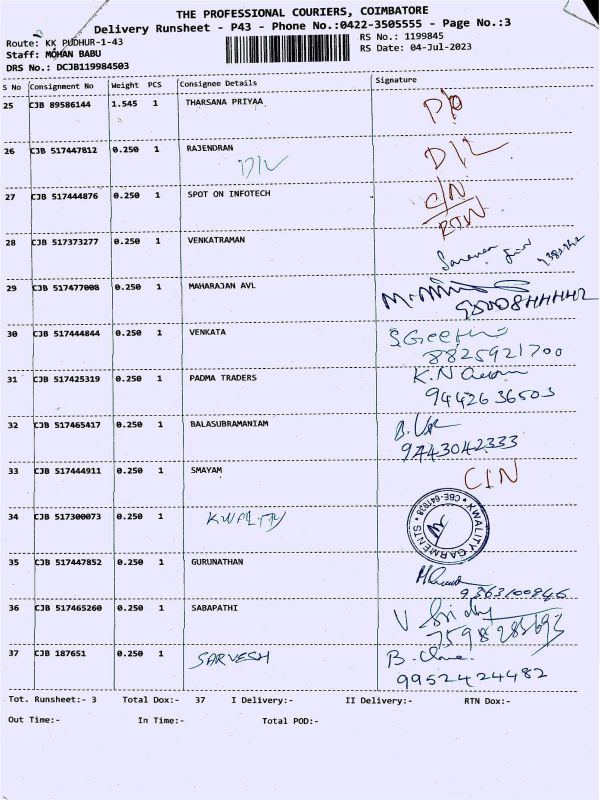 THE PROFESSIONAL COURIERS, COIMBATORE
Delivery Runsheet - P43 - Phone No.:0422-3505555 - Page No.:3
Route: KK PUDHUR-1-43
RS No.: 1199845
Staff: MOHAN BABU
RS Date: 04-Jul-2023
DRS No.: DCJB119984503
S No Consignment No Weight PCS Consignee Details Signature
25 CJB 89586144 1.545 1 THARSANA PRIYAA
26 CJB 517447812 0.250 1 RAJENDRAN D/L
D/L
27 CJB 517444876 0.250 1 SPOT ON INFOTECH C/N
RTN
28 CJB 517373277 0.250 1 VENKATRAMAN
29 CJB 517477008 0.250 1 MAHARAJAN AVL
30 CJB 517444844 0.250 1 VENKATA S.Geetha
8825921700
31 CJB 517425319 0.250 1 PADMA TRADERS K.N
9442636503
32 CJB 517465417 0.250 1 BALASUBRAMANIAM
9443042333
33 CJB 517444911 0.250 1 SMAYAM C/N
34 CJB 517300073 0.250 1 KWALITY KWALITY GARMENTS
35 CJB 517447852 0.250 1 GURUNATHAN
9363100946
36 CJB 517465260 0.250 1 SABAPATHI V Sridhy
7598283693
37 CJB 187651 0.250 1 SARVESH
9952424482
Tot. Runsheet:- 3 Total Dox:- 37 I Delivery:- II Delivery:- RTN Dox:-
Out Time:- In Time:- Total POD:-